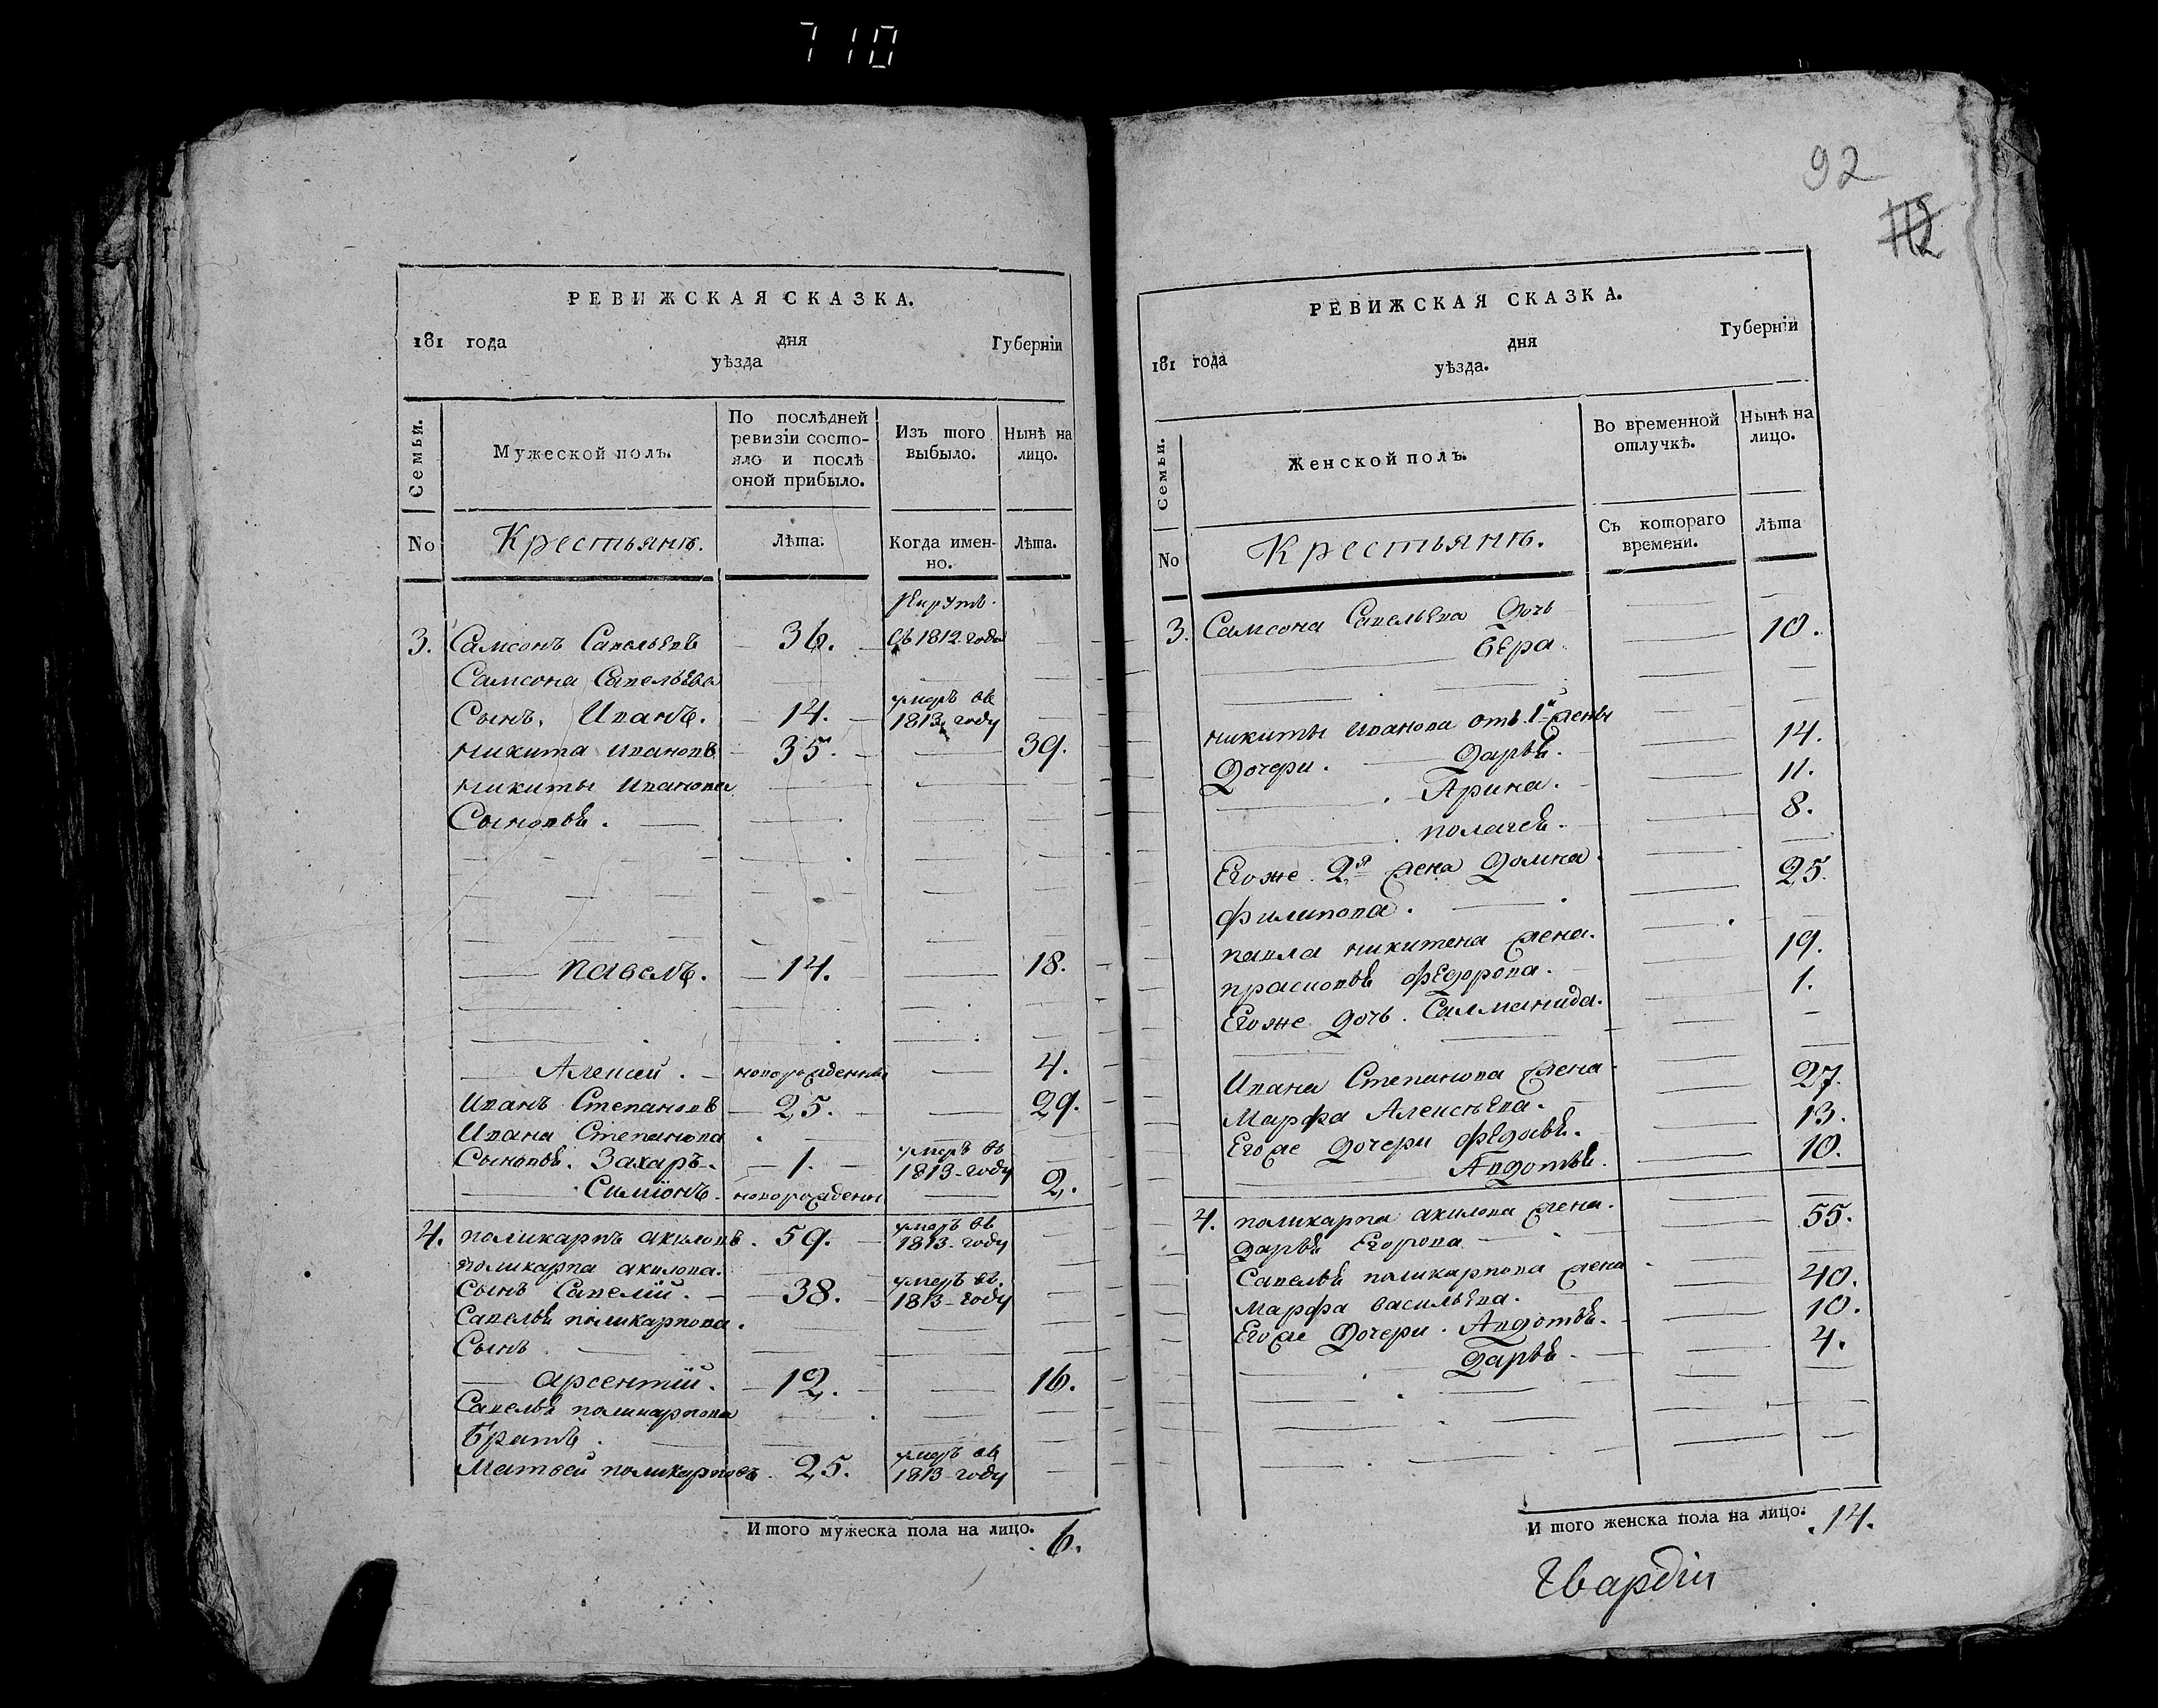 710
РЕВИЖСКАЯ СКАЗКА.
181 года дня Губерніи
уѣзда
Семьи.
Мужеской полъ.
По послѣдней ревизіи состояло и послѣ оной прибыло.
Изъ того выбыло.
Нынѣ на лицо.
No Крестьянъ. Лѣта. Когда именно. Лѣта.
Рекрутъ.
3. Самсонъ Савельевъ 36. Съ 1812 года
Самсона Савельева
Сынъ, Иванъ. 14. умеръ въ 1813 году
Никита Ивановъ 35. 39.
Никиты Иванова
Сыновья.
Павелъ. 14. 18.
Алексей. новорожденный 4.
Иванъ Степановъ 25. 29.
Ивана Степанова
Сыновья. Захаръ. 1. умеръ въ 1813 году
Симіонъ. новорожденны 2.
4. Поликарпъ Акиловъ. 59. умеръ въ 1813 году
Поликарпа Акилова.
Сынъ Савелій. 38. умеръ въ. 1813 году
Савелья Поликарпова.
Сынъ
Арсентій. 12. 16.
Савелья Поликарпова
Братъ.
Матвей Поликарповъ 25. умеръ въ 1813 году
Итого мужеска пола на лицо. 6.
92
112
РЕВИЖСКАЯ СКАЗКА.
181 года дня Губерніи
уѣзда.
Семьи.
Женской полъ.
Во временной отлучкѣ.
Нынѣ на лицо.
No Крестьянъ. Съ котораго времени. Лѣта
3. Самсона Савельева Дочь
Вера. 10.
Никиты Иванова отъ 1й жены
Дочери. Дарья. 14.
Арина. 11.
8.
Егоже 2я жена Домна 25.
Филипова.
Павла Никитена жена. 19.
Прасковья Федорова.
Егоже дочь. Салманида. 1.
Ивана Степанова жена 27.
Марфа Алексѣева.
Егоже Дочери Федосья. 13.
Авдотья. 10.
4. Поликарпа Акилова жена. 55.
Дарья Егорова
Савелья Поликарпова жена 40.
Марфа Васильева.
Егоже Дочери. Авдотья. 10.
Дарья. 4.
Итого женска пола на лицо. 14.
Гвардіи